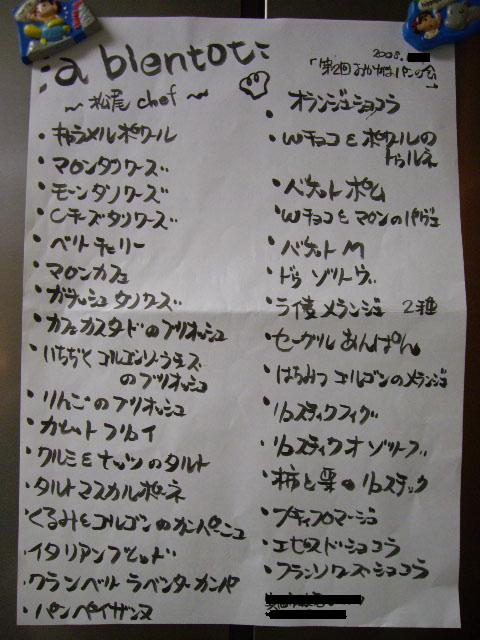 a bientot
2008.
「第2回 おかわりパンの会」
～松尾 chef～
・キャラメルポワール
・マロンダノワーズ
・モーンダノワーズ
・Cチーズダノワーズ
・ベリーチェリー
・マロンカフェ
・ガナッシュダノワーズ
・カフェカスタードのブリオッシュ
・いちぢくゴルゴンゾーラチーズ
のブリオッシュ
・りんごのブリオッシュ
・カムットフリュイ
・クルミとナッツのタルト
・タルトマスカルポーネ
・くるみとゴルゴンのカンパーニュ
・イタリアンブレッド
・クランベリーラベンダーカンパ
・パンペイザンヌ
・オランジュショコラ
・Wチョコとポワールの
トゥルネ
・バゲットポム
・Wチョコとマロンのパヴェ
・バゲットM
・ドゥゾリーヴ
・ライ麦メランジュ 2種
・セーグルあんぱん
・はちみつゴルゴンのメランジュ
・リュスティックフィグ
・リュスティックオゾリーブ
・柿と栗のリュスティック
・プティフロマージュ
・エピスドショコラ
・フランソワーズ・ショコラ